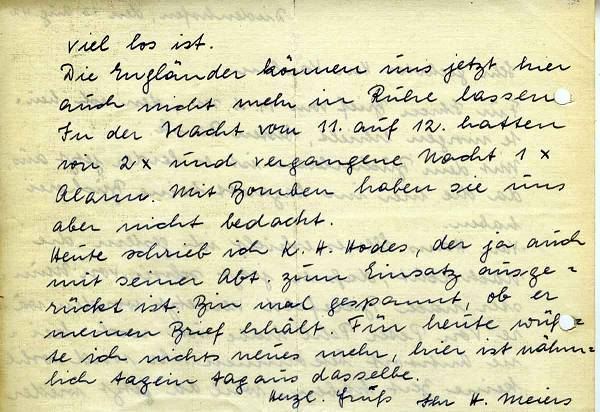 viel los ist.
Die Engländer können uns jetzt hier
auch nicht mehr in Ruhe lassen
In der Nacht vom 11. auf 12. hatten
wir 2 x und vergangene Nacht 1 x
Alarm. Mit Bomben haben sie uns
aber nicht bedacht.
Heute schrieb ich K. H. Hodes, der ja auch
mit seiner Abt. zum Einsatz ausge-
rückt ist. Bin mal gespannt, ob er
meinen Brief erhält. Für heute wüß-
te ich nichts neues mehr, hier ist nähm-
lich tagein tagaus dasselbe.
Herzl. Grüß Ihr H. Meiers